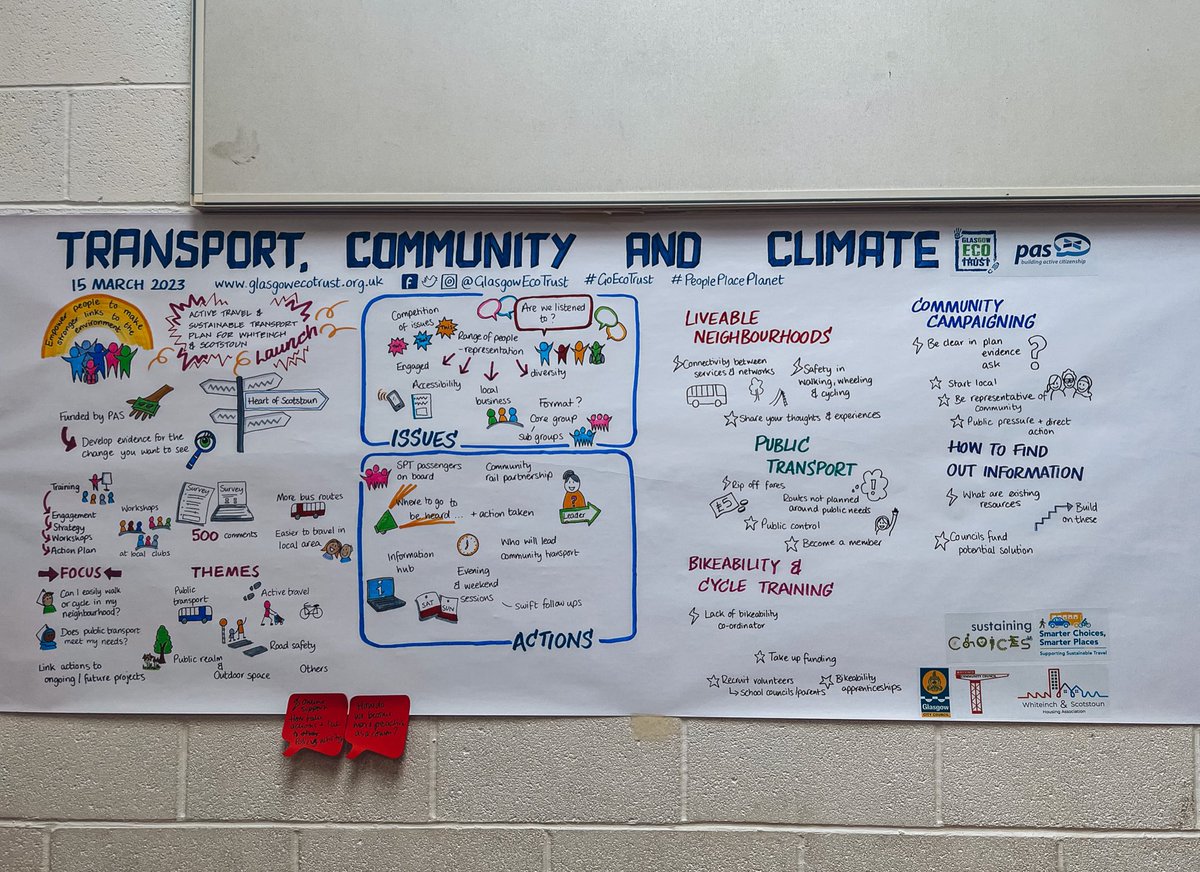 TRANSPORT, COMMUNITY AND CLIMATE
GLASGOW
ECO
TRUST
pas
building active citizenship
15 MARCH 2023
www.glasgowecotrust.org.uk
@GlasgowEcoTrust
#GoEcoTrust
#PeoplePlacePlanet
Empower people to make
stronger links to the
environment
ACTIVE TRAVEL &
SUSTAINABLE TRANSPORT
PLAN FOR WHITEINCH
& SCOTSTOUN
Launch
Heart of Scotstoun
Funded by PAS
Develop evidence for the
change you want to see
Training
Engagement
Strategy
Workshops
Action Plan
Workshops
at local clubs
Survey
Survey
500 comments
More bus routes
Easier to travel in
local area
FOCUS
Can I easily walk
or cycle in my
neighbourhood?
Does public transport
meet my needs?
Link actions to
ongoing / future projects
THEMES
Public
transport
Active travel
Road safety
Public realm
&
Outdoor space
Others
Competition
of issues
Are we listened
to?
Range of people
-representation
Engaged
diversity
Accessibility
local
business
Format?
Core group
Sub groups
ISSUES
SPT passengers
on board
Community
rail partnership
Where to go to
be heard... + action taken
Leader
Information
hub
Who will lead
community transport
Evening
& weekend
sessions
SAT
SUN
Swift follow ups
ACTIONS
LIVEABLE
NEIGHBOURHOODS
Connectivity between
services & networks
Safety in
walking, wheeling
& cycling
Share your thoughts & experiences
PUBLIC
TRANSPORT
Rip off fares
£5
Routes not planned
around public needs
Public control
Become a member
BIKEABILITY &
CYCLE TRAINING
Lack of bikeability
co-ordinator
Take up funding
Recruit volunteers
School councils/parents
Bikeability
apprenticeships
COMMUNITY
CAMPAIGNING
Be clear in plan
evidence
ask
?
Start local
Be representative of
community
Public pressure + direct
action
HOW TO FIND
OUT INFORMATION
What are existing
resources
Build
on these
Councils fund
potential solution
sustaining
CHOICES
Smarter Choices,
Smarter Places
Supporting Sustainable Travel
Glasgow
CITY COUNCIL
COMMUNITY COUNCIL
Whiteinch & Scotstoun
Housing Association